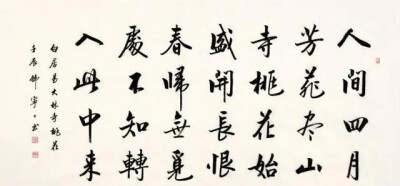 人間四月
芳菲尽山
寺桃花始
盛開長恨
春歸無覓
處不知轉
入此中来
白居易大林寺桃花
壬辰寧